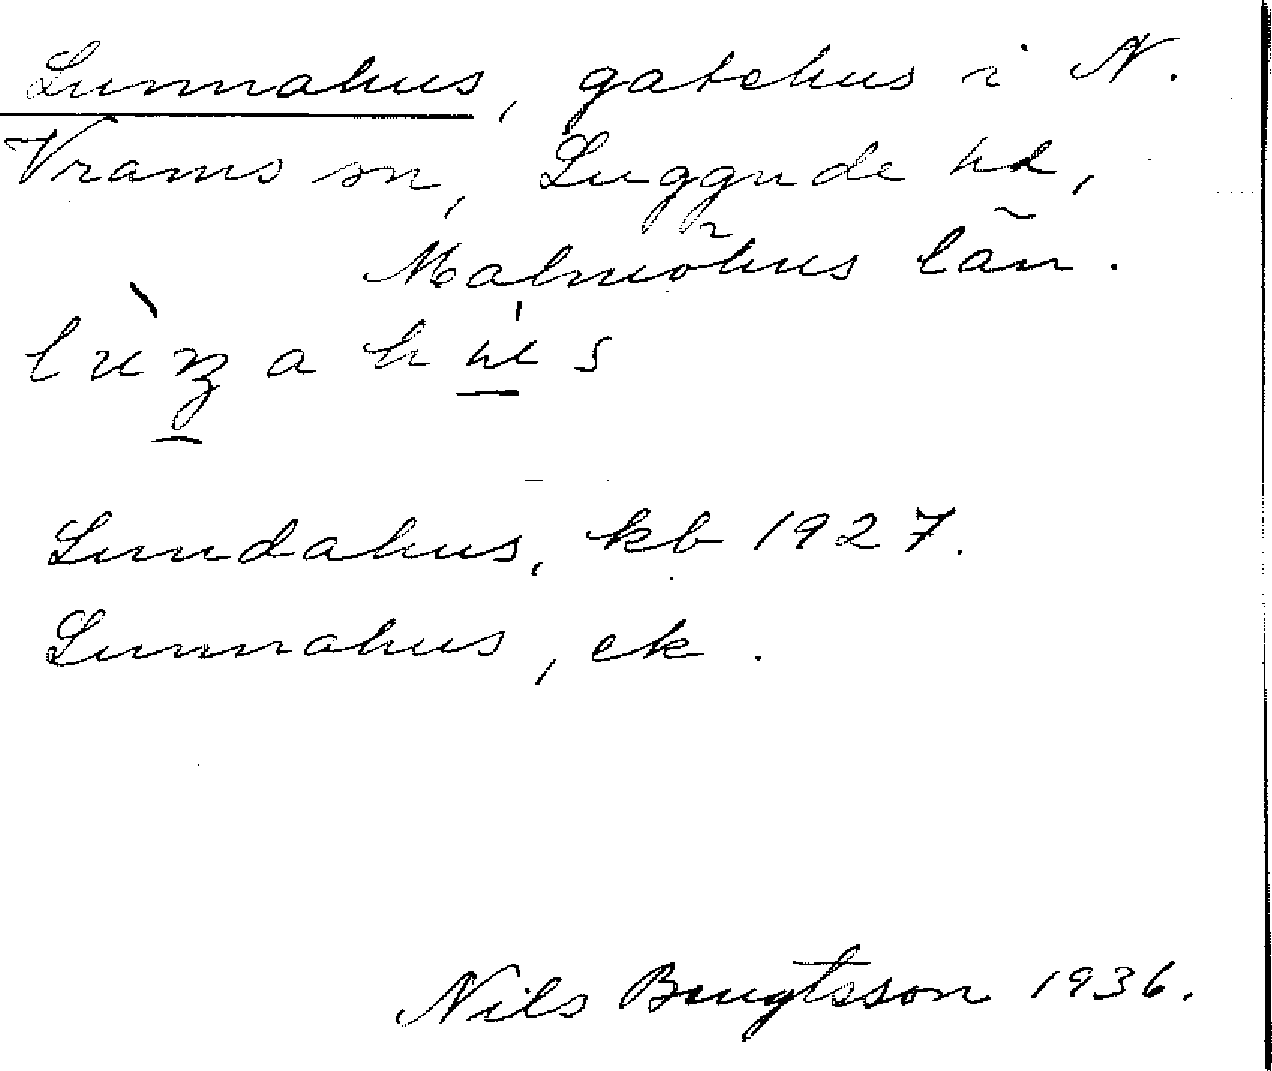 Lunnahus, gatehus i N.
Vrams sn, Luggude hd,
Malmöhus län.
Lundahus, kb 1927.
Lunnahus, ek.
Nils Bengtsson 1936.